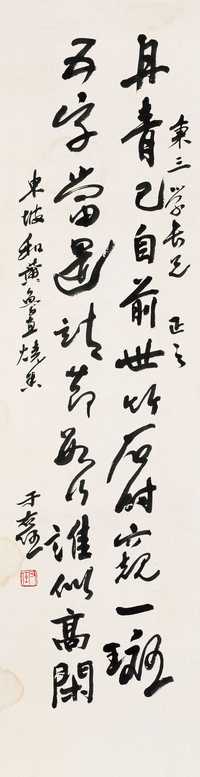 東三學長兄 正之
丹青已自前世竹石時窺一斑
五字當還靖節數行誰似高閑
東坡和黃魯直燒香